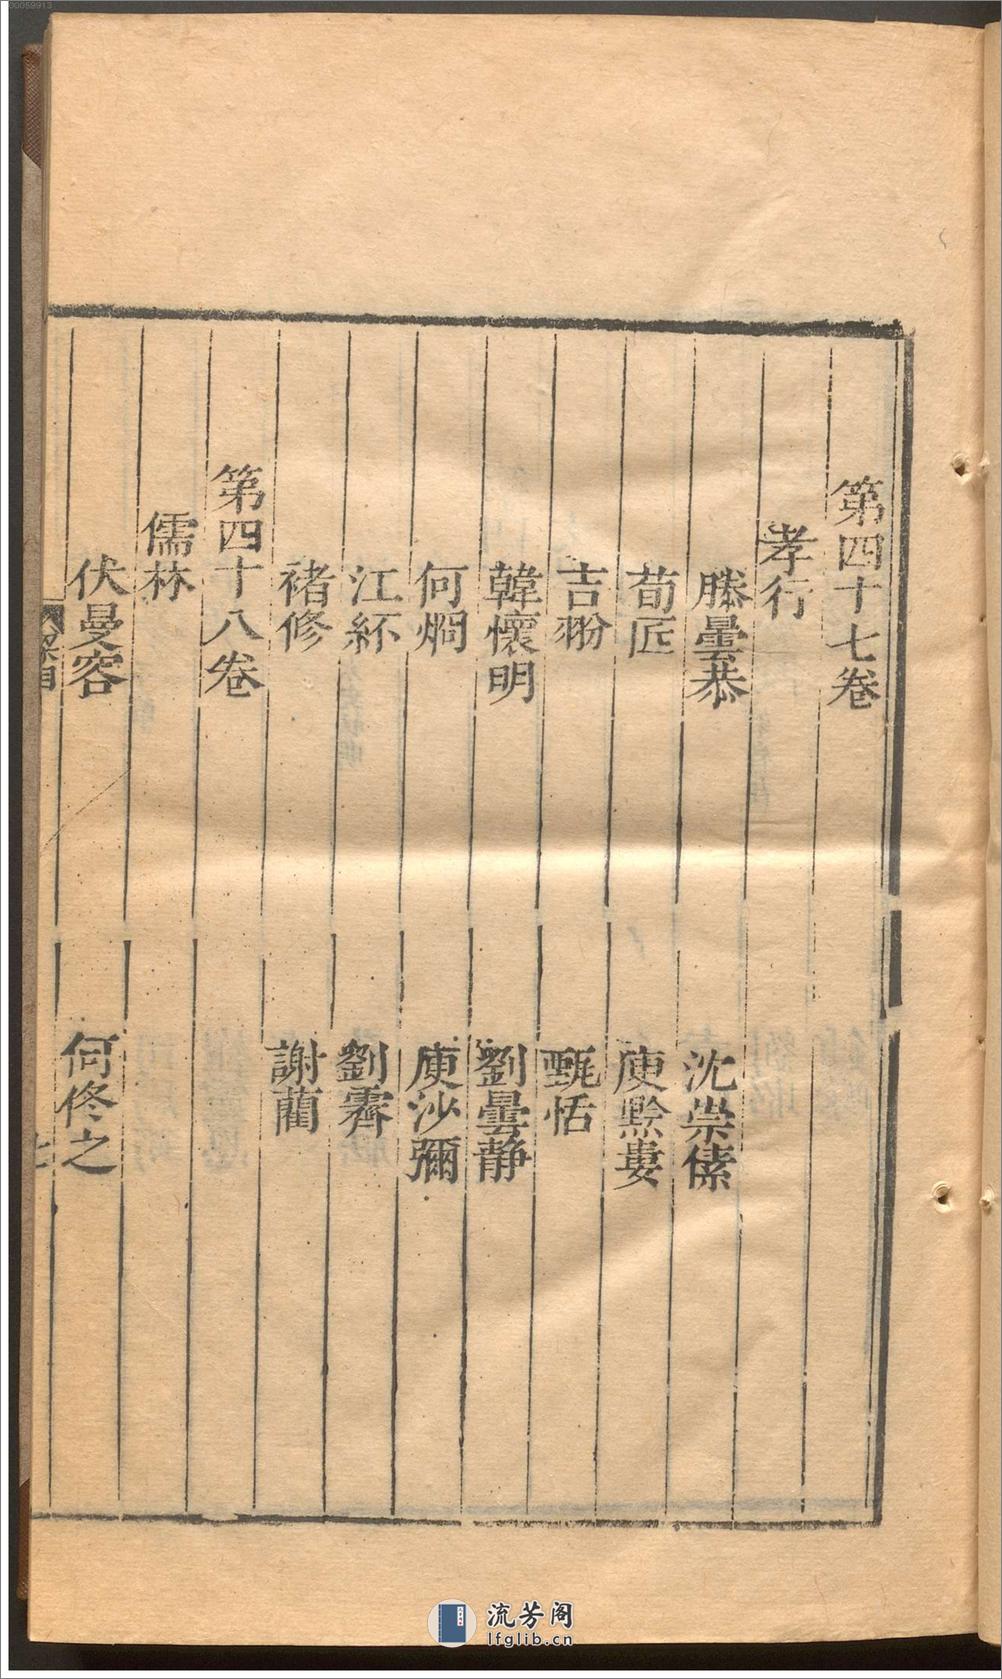 第四十七卷
孝行
滕曇恭 沈崇傃
荀匠 庾黔婁
吉翂 甄恬
韓懷明 劉曇靜
何烱 庾沙彌
江紑 劉霽
褚修 謝藺
第四十八卷
儒林
伏曼容 何佟之
流芳阁
lfglib.cn
00059913